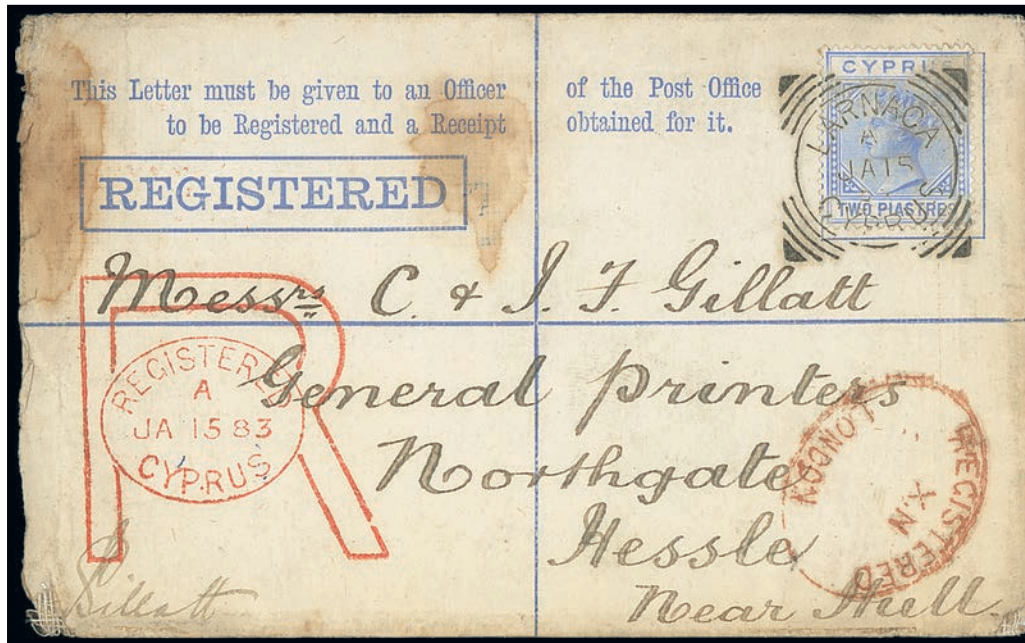 This Letter must be given to an Officer of the Post Office
to be Registered and a Receipt obtained for it.
REGISTERED
CYPRUS
TWO PIASTRES
LARNACA
A
JA 15
CYPRUS
Messrs C. & J. F. Gillatt
General Printers
Northgate
Hessle
Near Hull.
R
REGISTERED
A
JA 15 83
CYPRUS
REGISTERED
LONDON
X.N
Gillatt